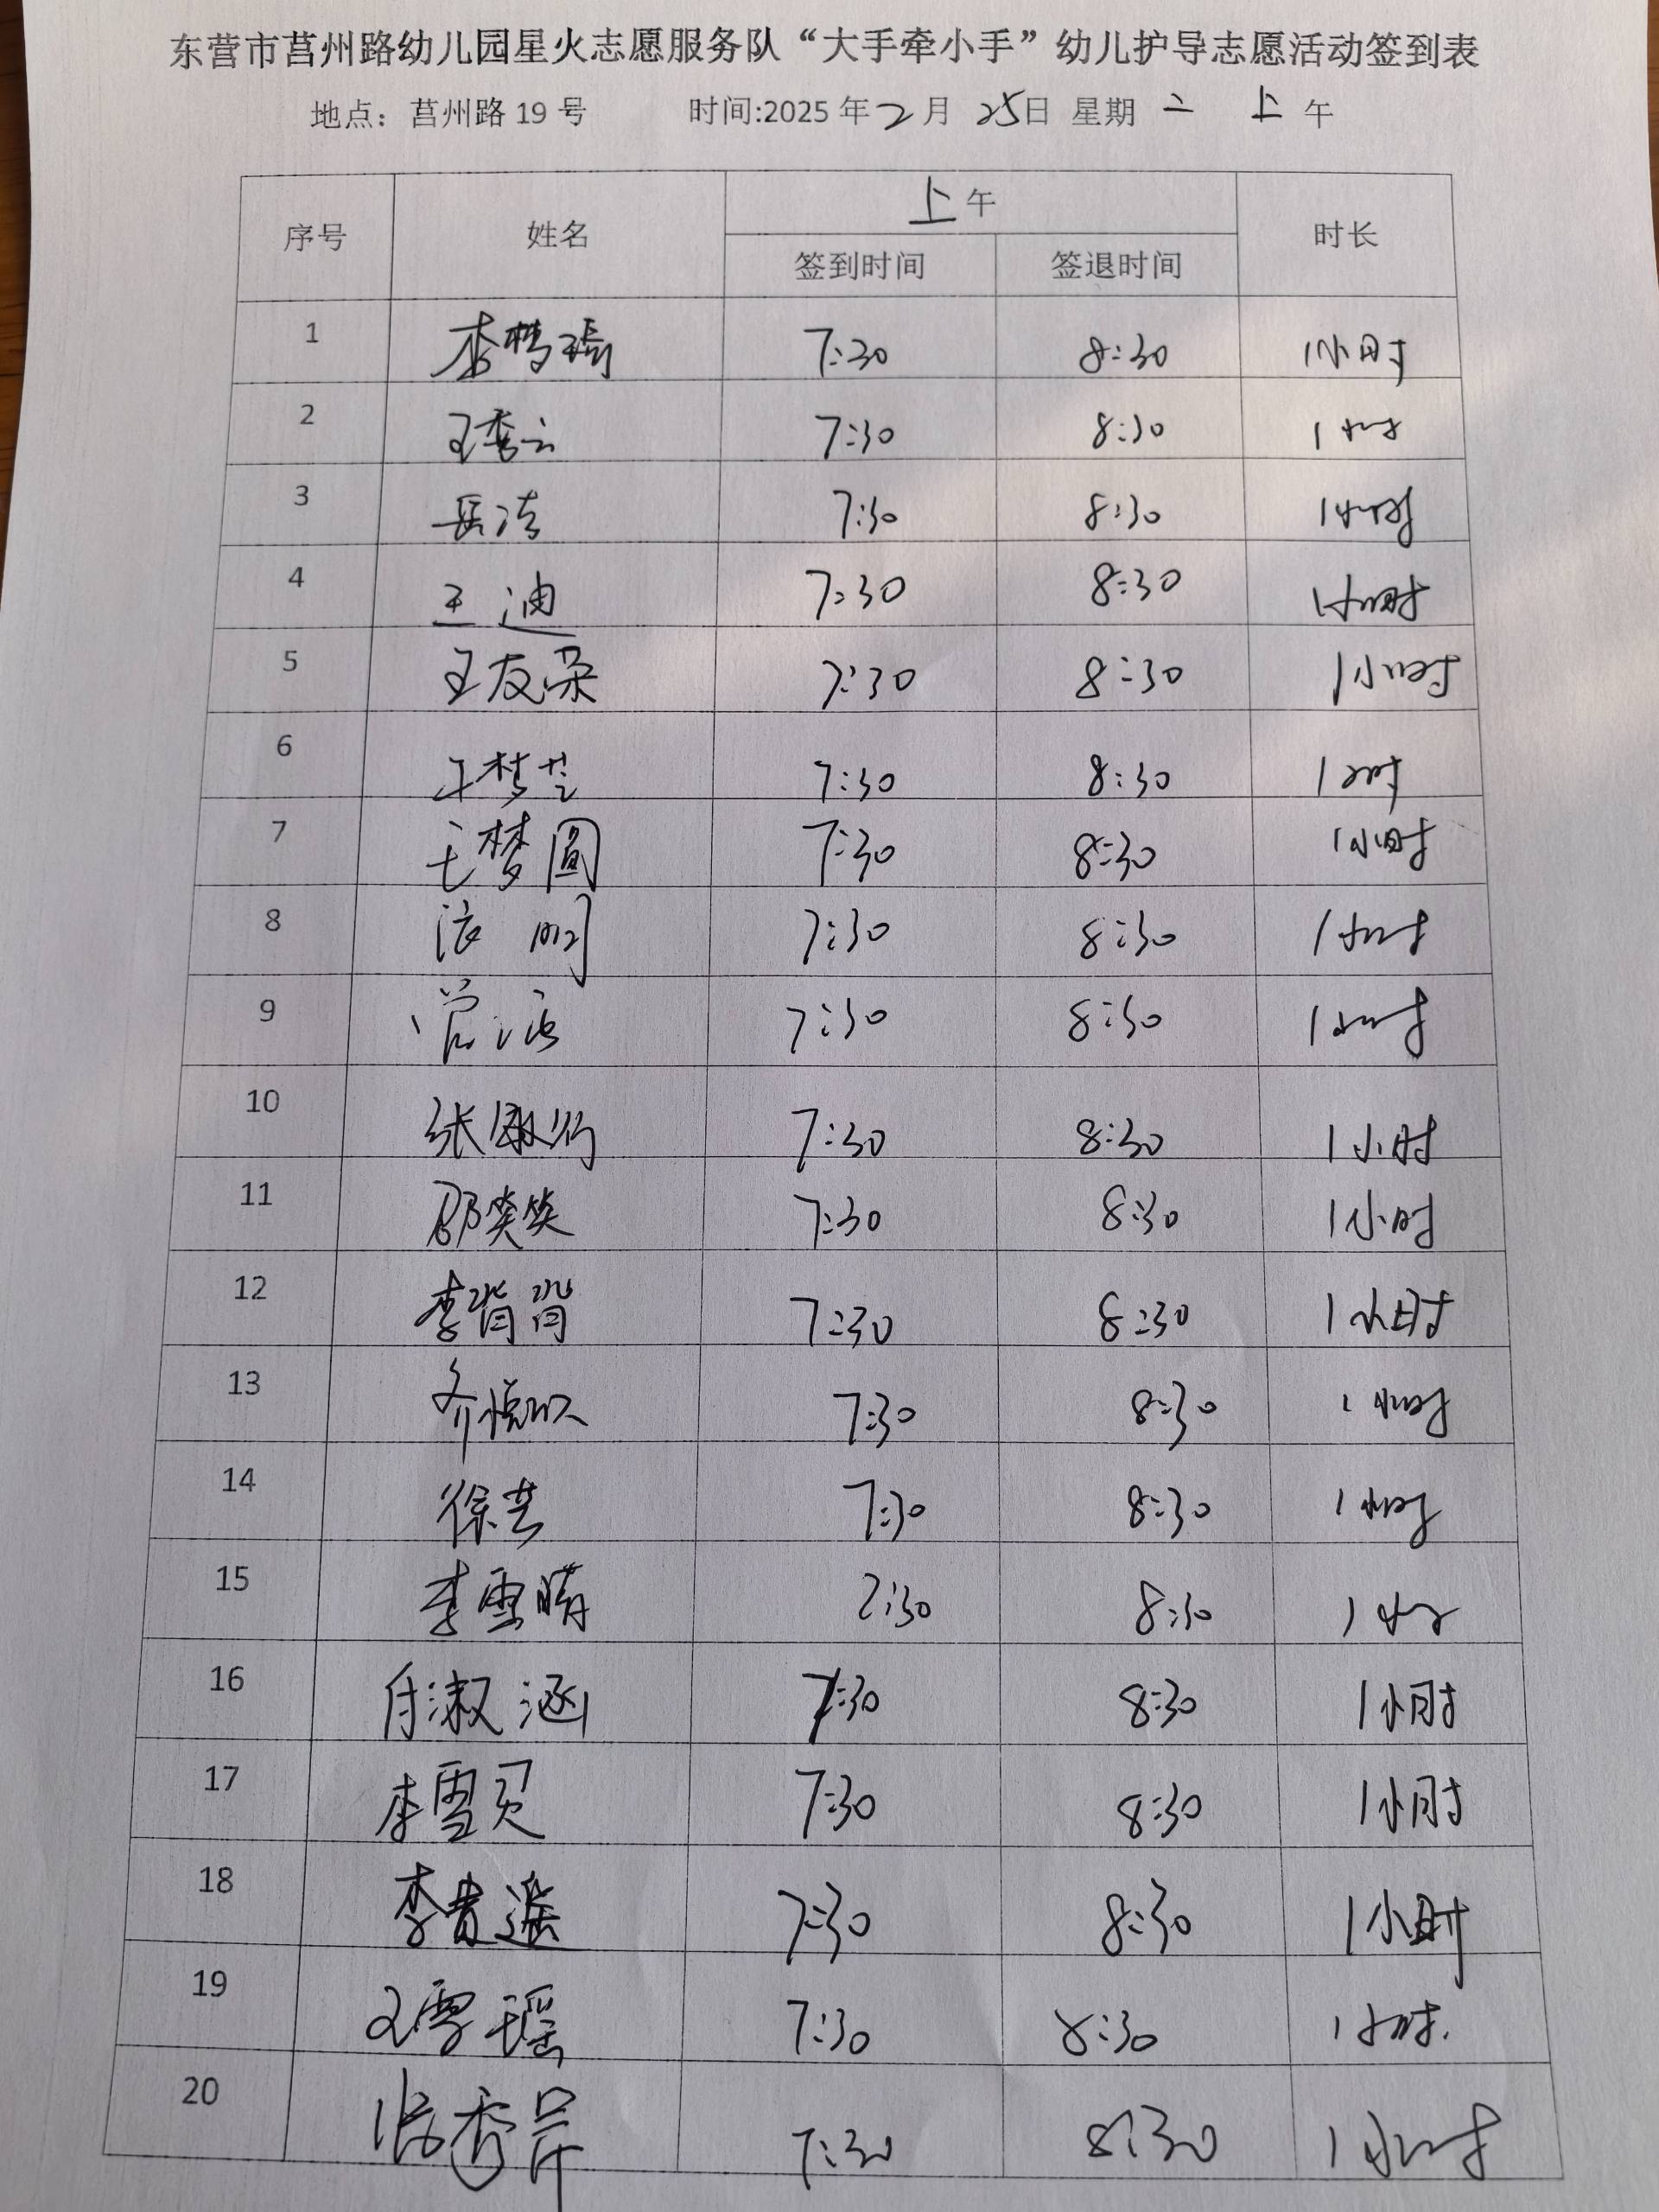 东营市莒州路幼儿园星火志愿服务队“大手牵小手”幼儿护导志愿活动签到表
地点：莒州路 19 号 时间:2025 年 2 月 25日 星期 二 上 午
序号 姓名 上午 时长
签到时间 签退时间
1 李梦瑶 7:30 8:30 1小时
2 王秀云 7:30 8:30 1小时
3 岳洁 7:30 8:30 1小时
4 王迪 7:30 8:30 1小时
5 王友朵 7:30 8:30 1小时
6 王梦芝 7:30 8:30 1小时
7 王梦圆 7:30 8:30 1小时
8 7:30 8:30 1小时
9 7:30 8:30 1小时
10 张 7:30 8:30 1小时
11 7:30 8:30 1小时
12 李 7:30 8:30 1小时
13 齐悦 7:30 8:30 1小时
14 徐芸 7:30 8:30 1小时
15 李雪晴 7:30 8:30 1小时
16 付淑涵 7:30 8:30 1小时
17 李雪 7:30 8:30 1小时
18 李贵遥 7:30 8:30 1小时
19 王雪瑶 7:30 8:30 1小时
20 秀 7:30 8:30 1小时